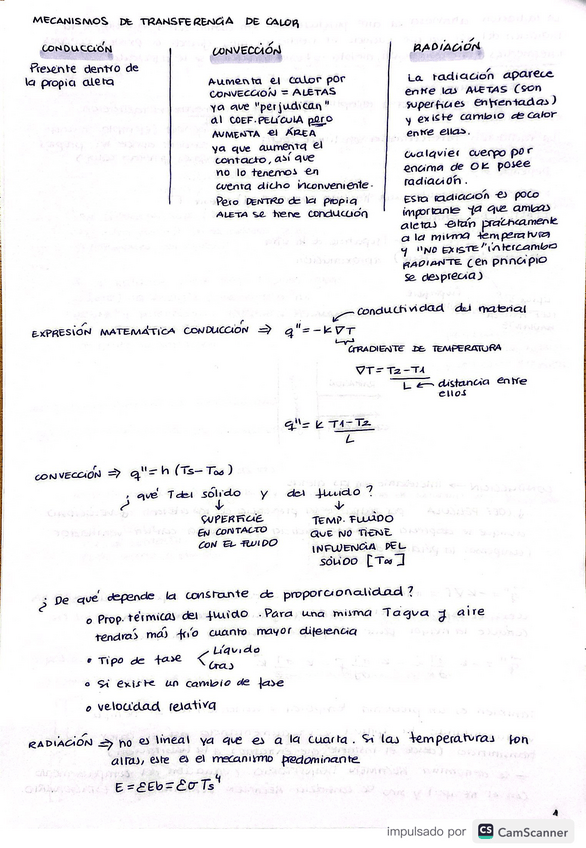 MECANISMOS DE TRANSFERENCIA DE CALOR
CONDUCCIÓN
Presente dentro de
la propia aleta
CONVECCIÓN
Aumenta el calor por
CONVECCIÓN = ALETAS
ya que "perjudican"
al COEF. PELÍCULA pero
AUMENTA el ÁREA
ya que aumenta el
contacto, así que
no lo tenemos en
cuenta dicho inconveniente.
Pero DENTRO de la propia
ALETA se tiene conducción
RADIACIÓN
La radiación aparece
entre las ALETAS (son
superficies enfrentadas)
y existe cambio de calor
entre ellas.
Cualquier cuerpo por
encima de 0K posee
radiación.
Esta radiación es poco
importante ya que ambas
aletas están prácticamente
a la misma temperatura
y "NO EXISTE" intercambio
RADIANTE (en principio
se desprecia)
EXPRESIÓN MATEMÁTICA CONDUCCIÓN ⇒ q" = -k ∇T
conductividad del material
GRADIENTE DE TEMPERATURA
∇T = T2-T1
L ← distancia entre
ellos
q" = k T1-T2
L
CONVECCIÓN ⇒ q" = h (Ts - T∞)
¿ qué T del sólido y del fluido ?
↓ ↓
SUPERFICIE
EN CONTACTO
CON EL FLUIDO
TEMP. FLUIDO
QUE NO TIENE
INFLUENCIA DEL
SÓLIDO [T∞]
¿ De qué depende la constante de proporcionalidad ?
o Prop. térmicas del fluido. Para una misma T agua y aire
tendrás más frío cuanto mayor diferencia
• Tipo de fase < Líquido
Gas
• Si existe un cambio de fase
o velocidad relativa
RADIACIÓN ⇒ no es lineal ya que es a la cuarta. Si las temperaturas son
altas, este es el mecanismo predominante
E = εEb = εσTs⁴
1
impulsado por CS CamScanner